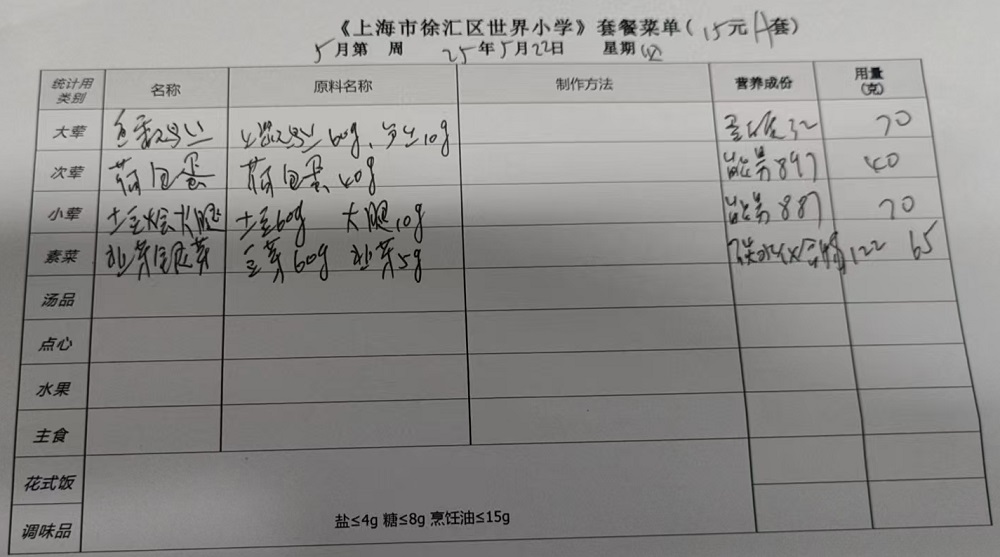 《上海市徐汇区世界小学》套餐菜单(15元A套)
5月第 周 25年5月22日 星期四
统计用类别 名称 原料名称 制作方法 营养成份 用量(克)
大荤 鱼香 60g、10g 32 70
次荤 荷包蛋 荷包蛋40g 能量897 40
小荤 土豆烩火腿 土豆60g 火腿10g 能量887 70
素菜 韭菜豆芽 豆芽60g 韭菜5g 碳水化合物122 65
汤品
点心
水果
主食
花式饭
调味品 盐≤4g 糖≤8g 烹饪油≤15g